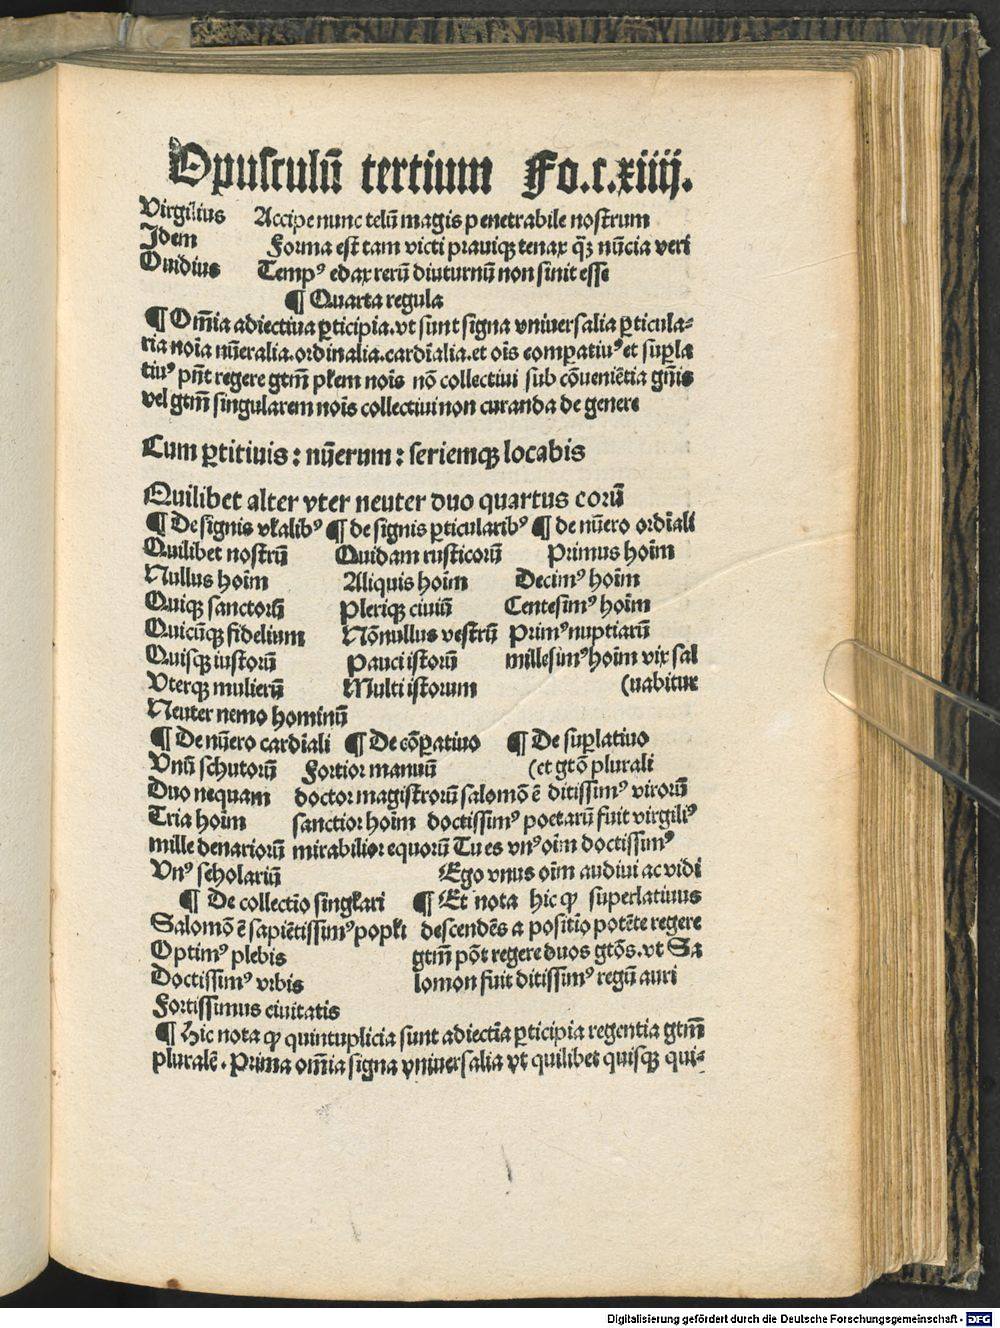 Opusculū tertium Fo.c.xiiij.
Virgilius Accipe nunc telū magis penetrabile nostrum
Idem Forma est tam victi prauiqꝫ tenax q̄ꝫ nūcia veri
Ouidius Tempꝰ edax rerū diuturnū non sinit esse
¶ Quarta regula
¶ Om̄ia adiectiua ꝑticipia.vt sunt signa vniuersalia ꝑticula-
ria noīa nūeralia.ordinalia.cardīalia.et oīs compatiuꝰ et supla
tiuꝰ pn̄t regere gtm̄ plem nois nō collectiui sub cōueniētia gn̄is
vel gtm̄ singularem noīs collectiui non curanda de genere
Cum ꝑtitiuis : nūerum : seriemqꝫ locabis
Quilibet alter vter neuter duo quartus corū
¶ De signis vłalibꝰ ¶ de signis ꝑticularibꝰ ¶ de nūero ordīali
Quilibet nostrū Quidam rusticorū Primus hoīm
Nullus hoīm Aliquis hoīm Decimꝰ hoīm
Quiqꝫ sanctorū Pleriqꝫ ciuiū Centesimꝰ hoīm
Quicūqꝫ fidelium Nōnullus vestrū Primꝰ nuptiarū
Quisqꝫ iustorū Pauci istorū millesimꝰ hoīm vix sal
Vterqꝫ mulierū Multi istorum (uabitur
Neuter nemo hominū
¶ De nūero cardīali ¶ De cōꝑatiuo ¶ De suplatiuo
Vnū schutorū Fortior manuū (et gtō plurali
Duo nequam doctor magistrorū salomō ē ditissimꝰ virorū
Tria hoīm sanctior hoīm doctissimꝰ poetarū fuit virgiliꝰ
mille denariorū mirabilior equorū Tu es vnꝰ oīm doctissimꝰ
Vnꝰ scholariū Ego vnus oīm audiui ac vidi
¶ De collectīo singłari ¶ Et nota hic ꝙ superlatiuus
Salomō ē sapiētissimꝰ popłi descendēs a positīo potēte regere
Optimꝰ plebis gtm̄ pōt regere duos gtōs.vt Sa
Doctissimꝰ vrbis lomon fuit ditissimꝰ regū auri
Fortissimus ciuitatis
¶ Hic nota ꝙ quintuplicia sunt adiectīa ꝑticipia regentia gtm̄
pluralē. Prima om̄ia signa vniuersalia vt quilibet quisqꝫ qui-
Digitalisierung gefördert durch die Deutsche Forschungsgemeinschaft - DFG